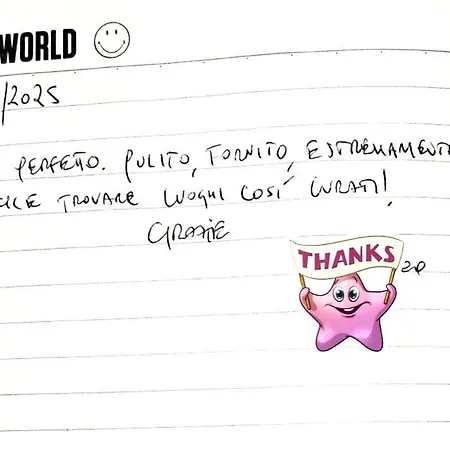 WORLD
/2025
PERFETTO. PULITO, FORNITO, ESTREMAMENTE
TROVARE LUOGHI COSÍ CURATI!
GRAZIE
THANKS